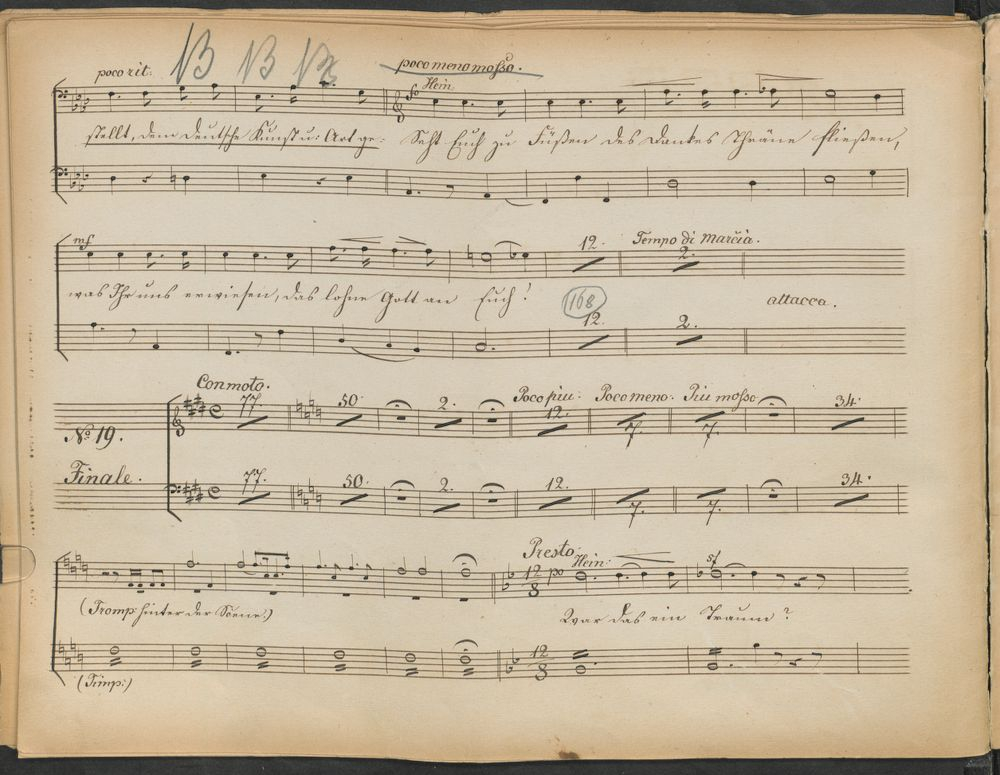 poco rit:
poco meno mosso.
Hein
stellt, dem deutsche Kunst u: Art ge: Seht Euch zu Füßen des Dankes Thräne fließen,
mf 12. Tempo di Marcia. 2.
was Ihr uns erwiesen, das lohne Gott an Euch!
168
attacca.
12. 2.
Con moto. Poco piu. Poco meno. Piu mosso
77 50. 2. 12. 7. 7. 34.
No 19.
Finale.
77. 50. 2. 12. 7. 7. 34.
Presto.
Hein: sf
12/8
(Tromp: hinter der Scene.) War das ein Traum?
12/8
(Timp:)